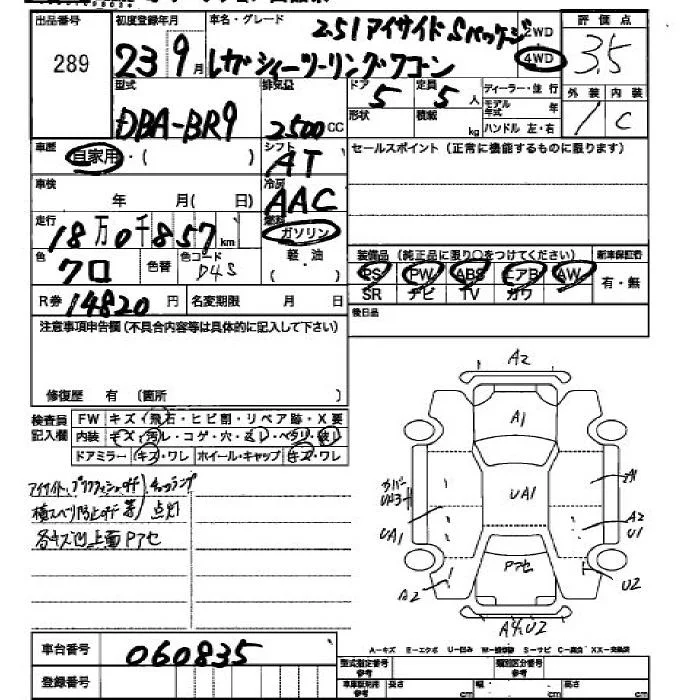 出品番号 初度登録年月 車名・グレード 2.5i アイサイト Sパッケージ 2WD 評価点
289 23 9月 レガシィツーリングワゴン 4WD 3.5
型式 排気量 ドア 5 定員 5人 ディーラー・並行 外装 内装
DBA-BR9 2500cc 形状 積載 kg モデル年式 年 ハンドル 左・右 C
車歴 シフト セールスポイント(正常に機能するものに限ります)
自家用・( ) AT
車検 年 月( 日) 冷房 AAC
走行 18万0千857km 燃料 ガソリン
装備品 (純正品に限り○をつけてください) 新車保証書
色 クロ 色替 色コード D4S 軽・油 ( )
PS PW ABS エアB AW 有・無
SR ナビ TV カワ
R券 14820円 名変期限 月 日
後日品
注意事項申告欄(不具合内容等は具体的に記入して下さい)
修復歴 有 (箇所
検査員記入欄 FW キズ・飛石・ヒビ割・リペア跡・X要
内装 キズ・汚レ・コゲ・穴・
ドアミラー キズ・ワレ ホイール・キャップ キズ・ワレ
アイサイト、
横スベリ防止 点灯
各キズ凹 上面Pアセ
A2
A1
UA1
A1
UA1
A2
U1
Pアセ
A2
U2
車台番号 060835
A-キズ E-エクボ U-凹み S-サビ
登録番号
型式指定番号 参考 類別区分番号 参考
長さ cm 幅 cm 高さ cm